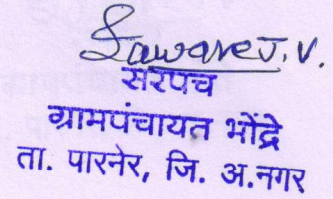 Laware J. V.
सरपंच
ग्रामपंचायत भोंद्रे
ता. पारनेर, जि. अ.नगर